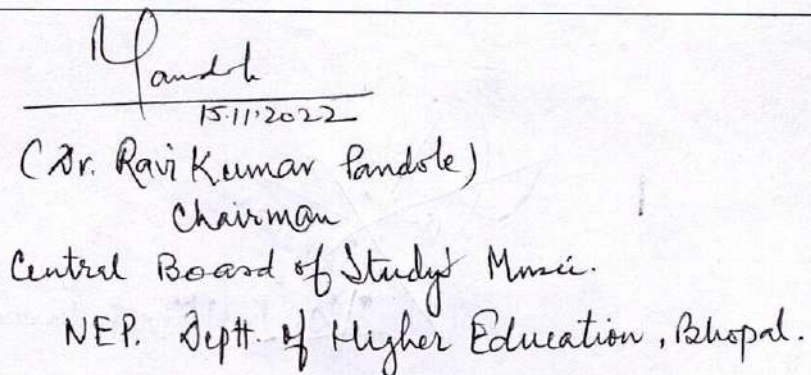 Pandole
15.11.2022
(Dr. Ravi Kumar Pandole)
Chairman
Central Board of Study Music.
NEP. Deptt. of Higher Education, Bhopal.